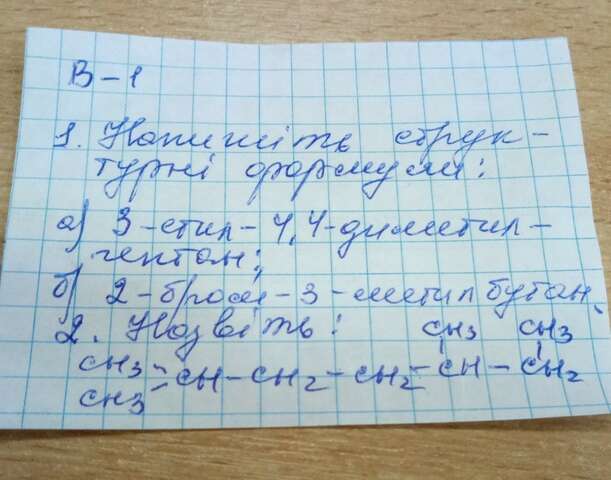 В-1
1. Напишіть струк-
турні формули:
а) 3-етил-4,4-диметил-
гептан;
б) 2-бром-3-метилбутан.
2. Назвіть: CH3 CH3
CH3
>CH-CH2-CH2-CH-CH2
CH3